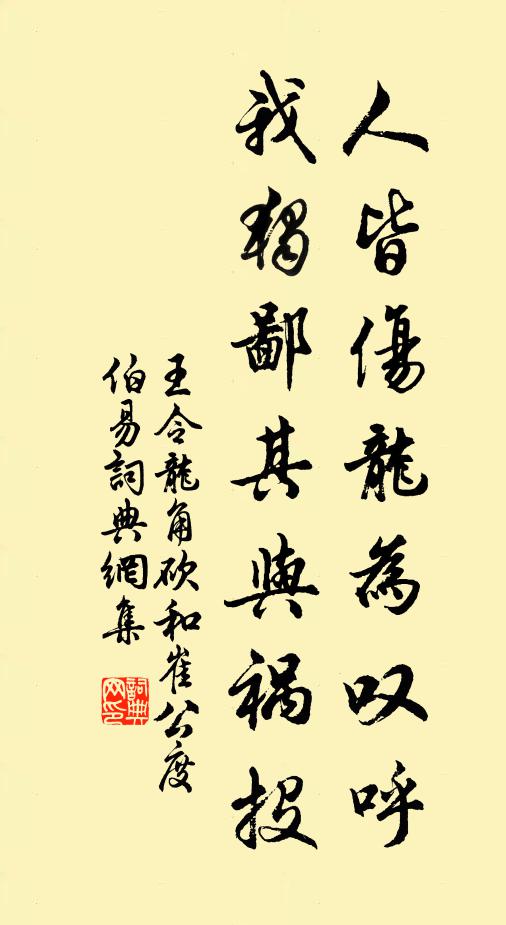 人皆傷龍為叹呼
我獨鄙其與祸投
王令龍角砍和崔公度
伯易詞典網集
詞典网印